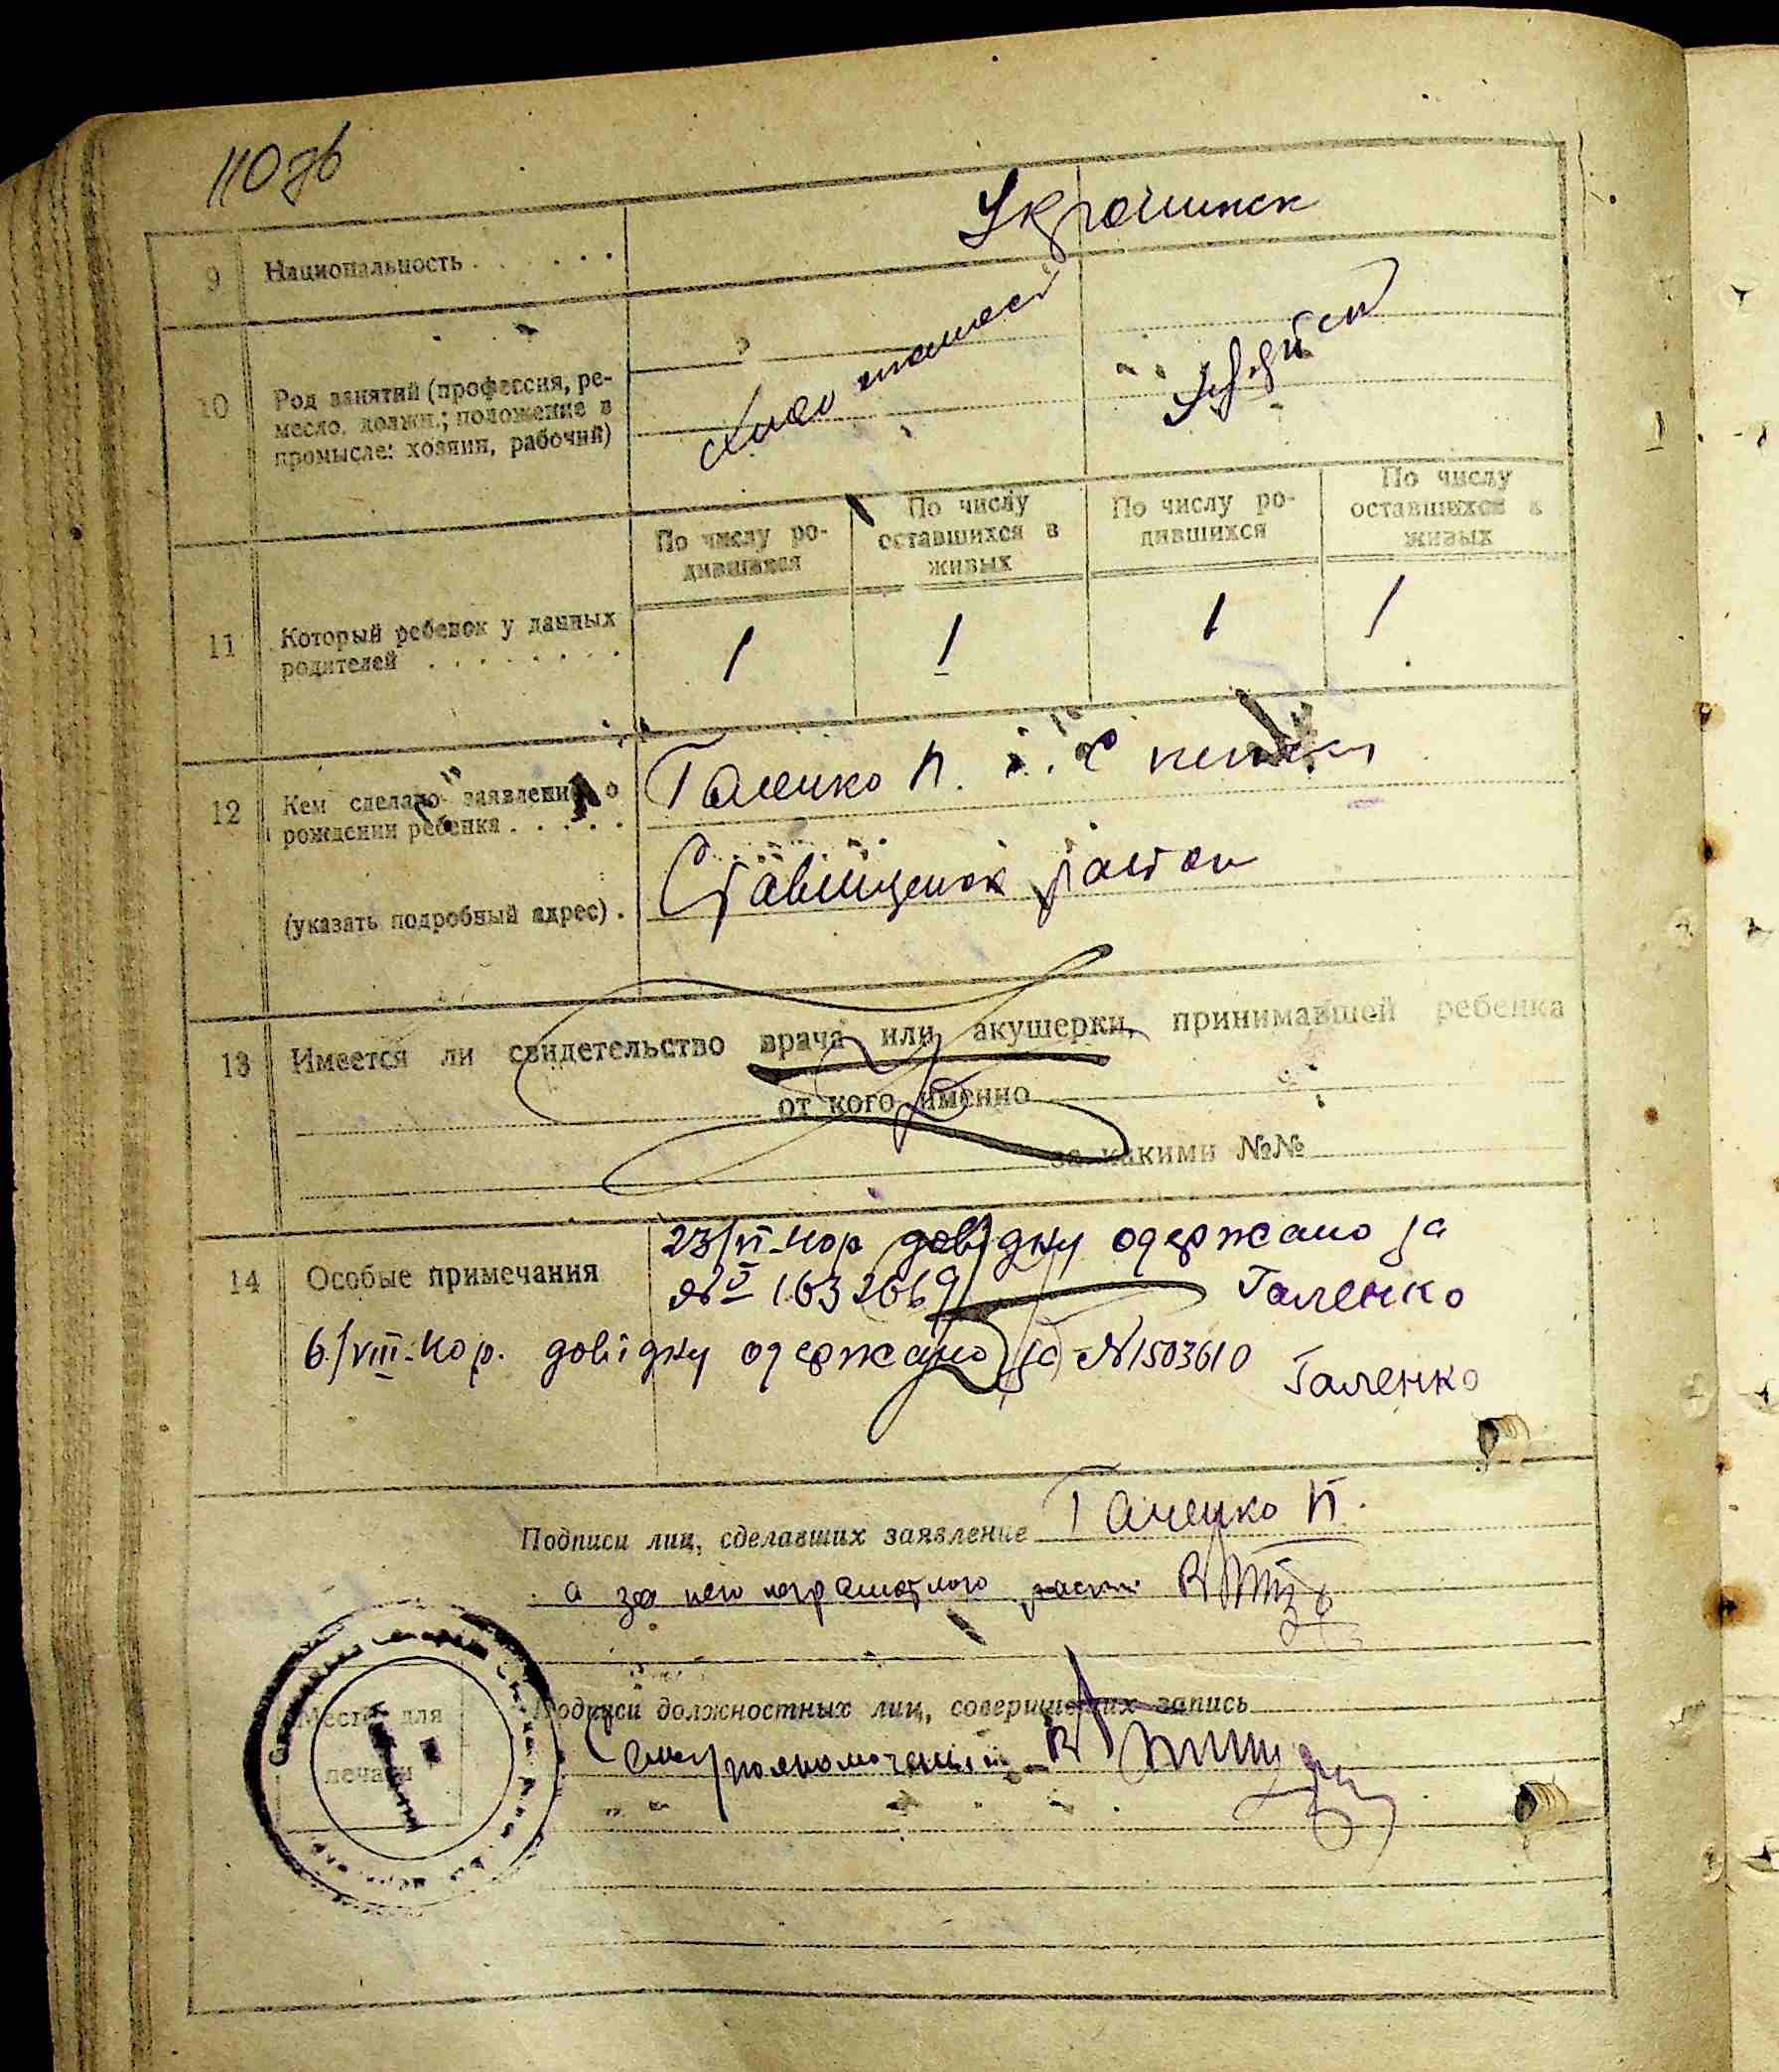 110 зв
9 Национальность . . . . . .
10 Род занятий (профессия, ре-
месло, должн.; положение в
промысле: хозяин, рабочий)
11 Который ребенок у данных
родителей . . . . . . . .
По числу ро-
дившихся
По числу
оставшихся в
живых
По числу ро-
дившихся
По числу
оставшихся в
живых
1 1 1 1
12 Кем сделано заявление о
рождении ребенка . . . . .
(указать подробный адрес) .
Галенко П. с
район
13 Имеется ли свидетельство врача или акушерки, принимавшей ребенка
от кого именно
за какими №№
14 Особые примечания
23/VI-40р довідку одержано за
№ 1632669 Галенко
6/VIII-40р. довідку одержано за №1503610 Галенко
Подписи лиц, сделавших заявление Галенко П.
а за него
Подписи должностных лиц, совершивших запись
Место для
печати